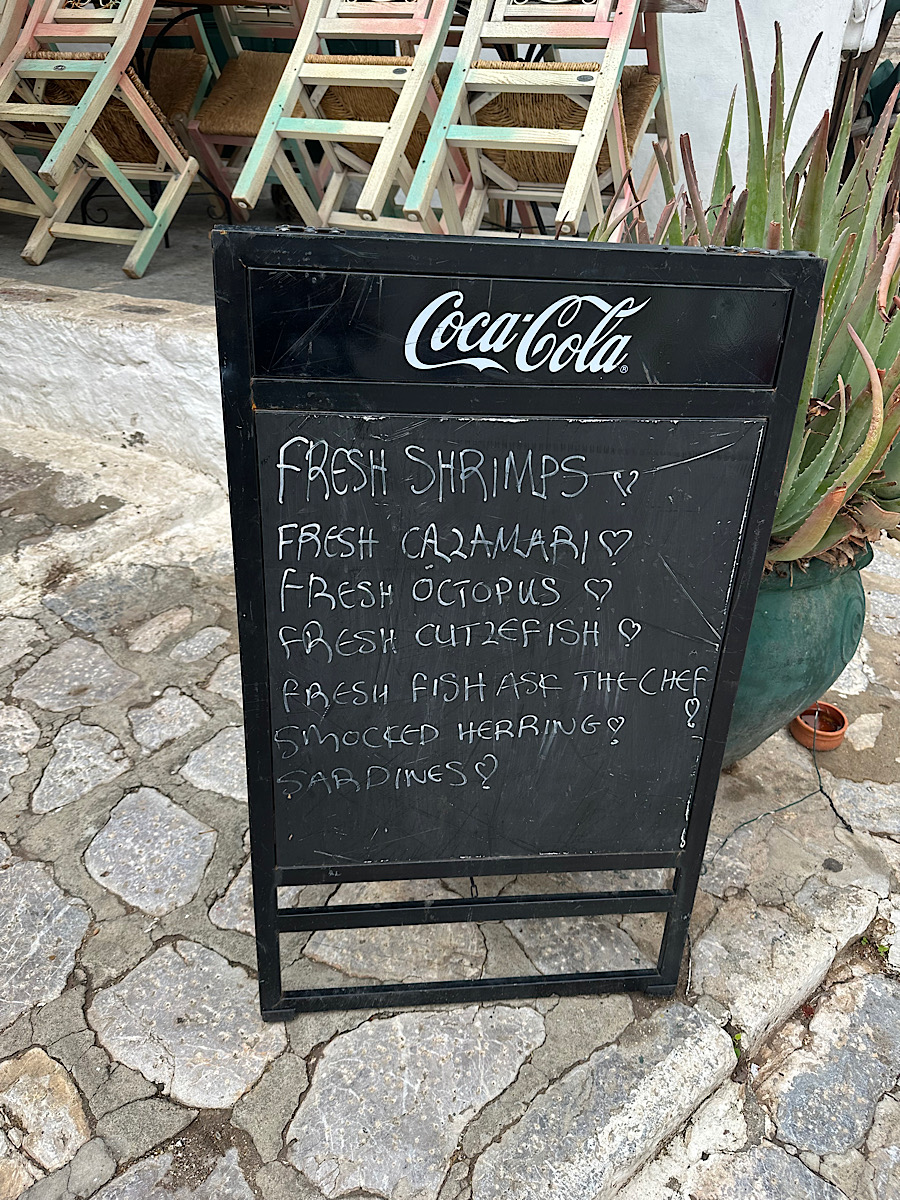 Coca-Cola®
FRESH SHRIMPS ♡
FRESH CALAMARI ♡
FRESH OCTOPUS ♡
FRESH CUTLEFISH ♡
FRESH FISH ASK THE CHEF
♡
SMOCKED HERRING ♡
SARDINES ♡